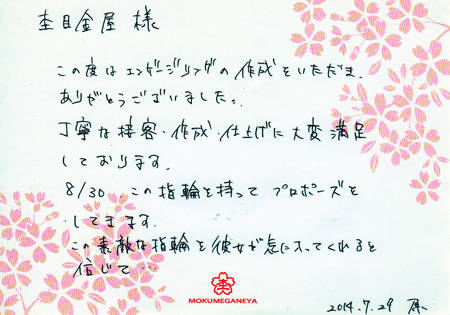 杢目金屋 様
この度はエンゲージリングの作成をいただき
ありがとうございました。
丁寧な接客・作成・仕上げに大変満足
しております。
8/30 この指輪を持ってプロポーズを
してきます。
この素敵な指輪を彼女が気に入ってくれると
信じて…
MOKUMEGANEYA
2014.7.29